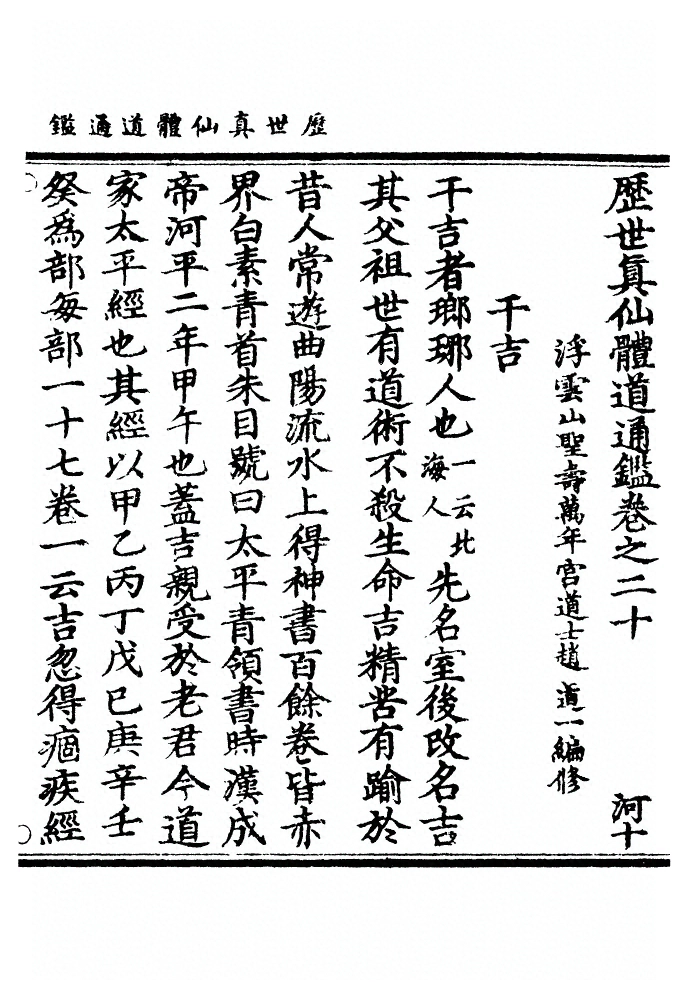 歷世真仙體道通鑑
歷世真仙體道通鑑卷之二十 河十
浮雲山聖壽萬年宮道士趙道一編修
干吉
干吉者瑯琊人也一云北海人先名室後改名吉
其父祖世有道術不殺生命吉精苦有踰於
昔人常遊曲陽流水上得神書百餘卷皆赤
界白素青首朱目號曰太平青領書時漢成
帝河平二年甲午也蓋吉親受於老君今道
家太平經也其經以甲乙丙丁戊巳庚辛壬
癸爲部每部一十七卷一云吉忽得痼疾經